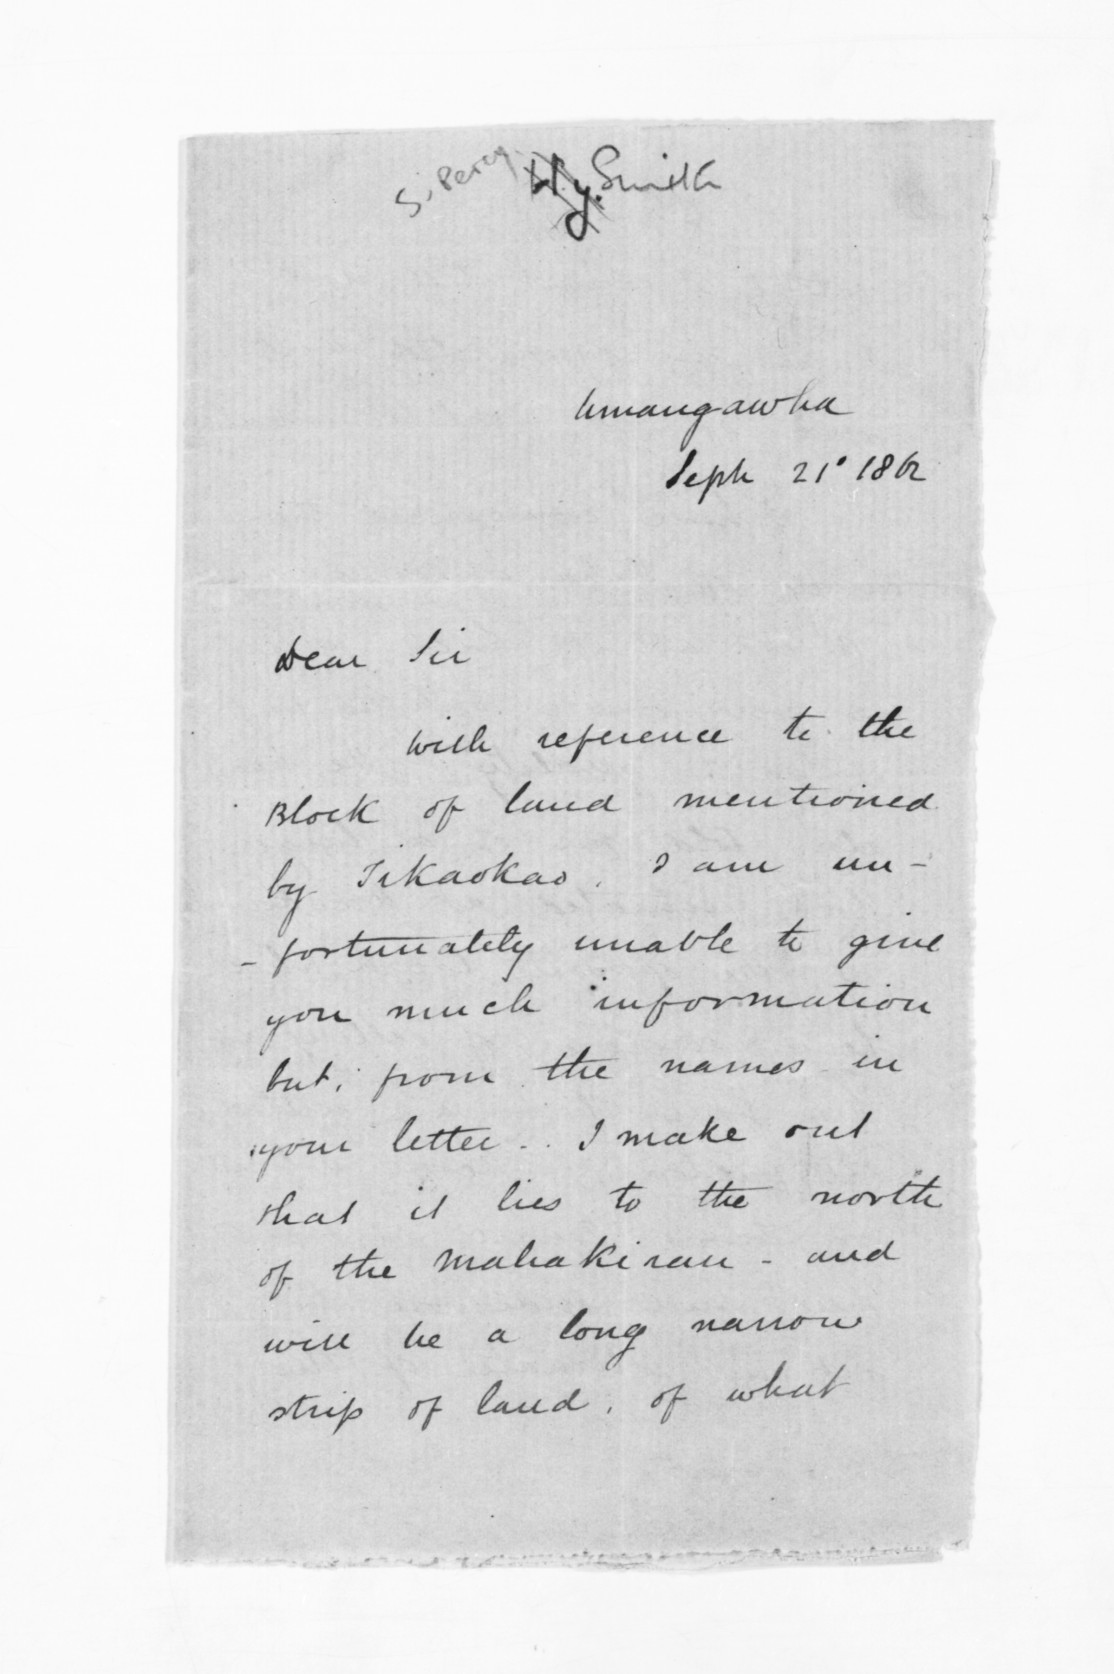 S. Percy Hy. Smith
Umangawha
Sept 21st 1862
Dear Sir
With reference to the
Block of land mentioned
by Tikaokao. I am un-
-fortunately unable to give
you much information
but, from the names in
your letter.. I make out
that it lies to the north
of the Mahakirau - and
will be a long narrow
strip of land. of what